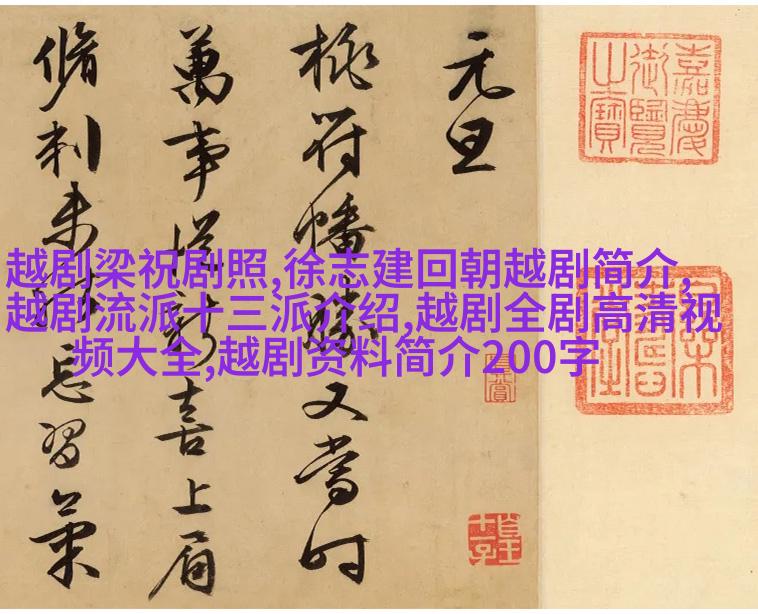 元旦
桃符幡勝又當時
萬事從新喜上眉
脩刺未忘習
嘉慶御覽之寶
越剧梁祝剧照,徐志建回朝越剧简介,
越剧流派十三派介绍,越剧全剧高清视
频大全,越剧资料简介200字